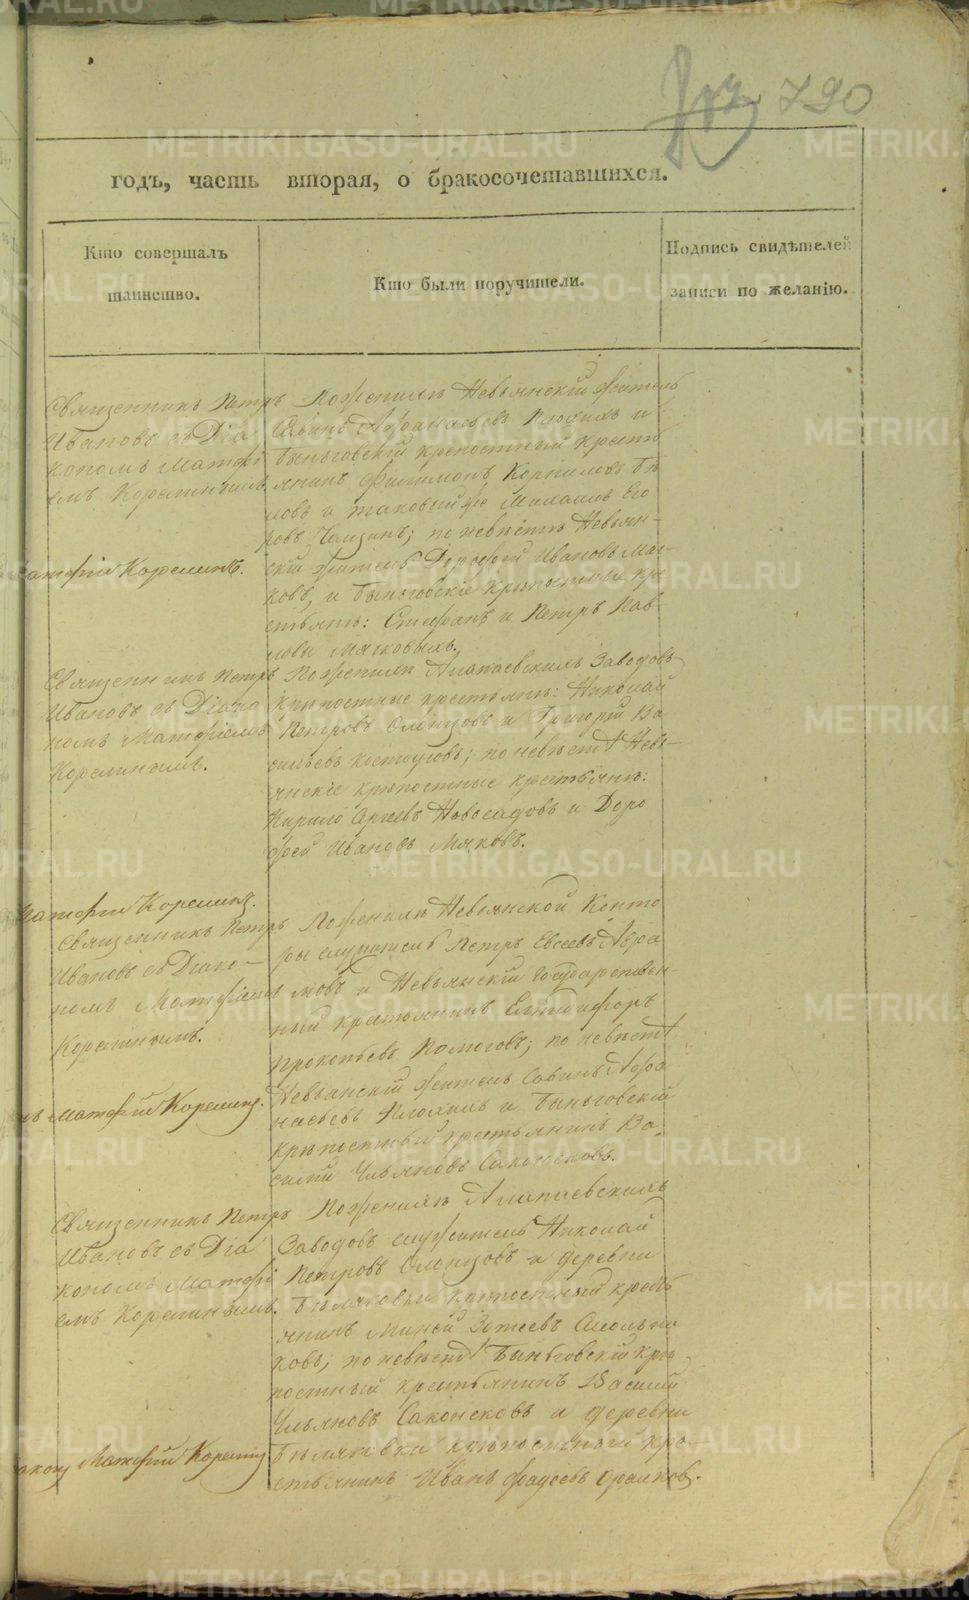 790
годъ, часть вторая, о бракосочетавшихся.
Кто совершалъ
таинство.
Кто были поручители.
Подпись свидѣтелей
записи по желанію.
Священникъ Петръ
Ивановъ съ Діа
кономъ Матфі
емъ Корелинымъ.
По женихѣ Невьянскій житель
Аѳанасьевъ Плохихъ и
Быньговскій крепостный кресть
янинъ Филимонъ Корниловъ Бѣ
ловъ и таковый же Михаилъ Его
ровъ по невѣстѣ Невьян-
скій житель Дорофей Ивановъ Мяг-
ковъ, и Быньговскіе крѣпостные кре
стьяне: Стефанъ и Петръ Пав
ловы Мягковыхъ.
Матфій Корелинъ.
Священникъ Петръ
Ивановъ съ Діако
номъ Матфіемъ
Корелинымъ.
По женихѣ Алапаевскихъ Заводовъ
крѣпостные крестьяне: Николай
Петровъ Олонцовъ и Григорій Ва
сильевъ по невѣстѣ Невь-
янскіе крѣпостные крестьяне:
Кирило Новосадовъ и Доро
фей Ивановъ Мяковъ.
Матфій Корелинъ.
Священникъ Петръ
Ивановъ съ Діако-
номъ Матфіемъ
Корелинымъ.
По женихѣ Невьянской Конто
ры служитель Петръ Евсеевъ Абра
мовъ и Невьянскій Государствен-
ный крестьянинъ Елпидифоръ
Прокопьевъ по невѣстѣ
Невьянскій житель Савинъ Афа
насьевъ Плохихъ и Быньговскій
крѣпостный крестьянинъ Ва
силій Ульяновъ
Матфій Корелинъ.
Священникъ Петръ
Ивановъ съ Діа
кономъ Матфі
емъ Корелинымъ.
По женихѣ Алапаевскихъ
Заводовъ служитель Николай
Петровъ Олонцовъ и деревни
крѣпостный кресть
янинъ
ковъ; по невѣстѣ Быньговскій крѣ-
постный крестьянинъ Василій
Ульяновъ и деревни
крѣпостный кре-
стьянинъ Иванъ Фадеевъ
Матфий Корелинъ